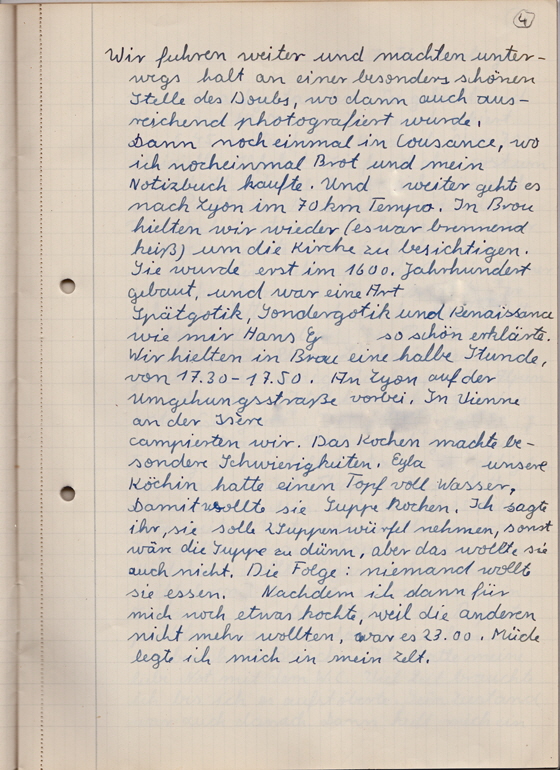 4
Wir fuhren weiter und machten unter-
wegs halt an einer besonders schönen
Stelle des Doubs, wo dann auch aus-
reichend photografiert wurde.
Dann noch einmal in Cousance, wo
ich nocheinmal Brot und mein
Notizbuch kaufte. Und weiter geht es
nach Lyon im 70 km Tempo. In Brou
hielten wir wieder (es war brennend
heiß) um die Kirche zu besichtigen.
Sie wurde erst im 1600. Jahrhundert
gebaut, und war eine Art
Spätgotik, Sondergotik und Renaissance
wie mir Hans G so schön erklärte.
Wir hielten in Brou eine halbe Stunde,
von 17.30 - 17.50. An Lyon auf der
Umgehungsstraße vorbei. In Vienne
an der Isère
campierten wir. Das Kochen machte be-
sondere Schwierigkeiten. Eyla unsere
Köchin hatte einen Topf voll Wasser,
Damit wollte sie Suppe kochen. Ich sagte
ihr, sie solle 2 Suppenwürfel nehmen, sonst
wäre die Suppe zu dünn, aber das wollte sie
auch nicht. Die Folge: niemand wollte
sie essen. Nachdem ich dann für
mich noch etwas kochte, weil die anderen
nicht mehr wollten, war es 23.00. Müde
legte ich mich in mein Zelt.